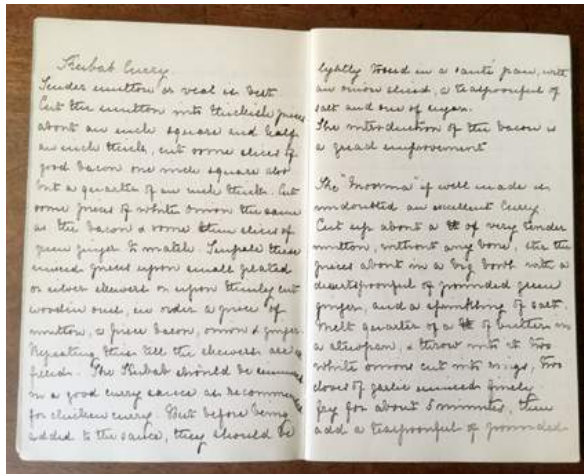 Kubab Curry
Tender mutton or veal is best
Cut the mutton into thickish pieces
about an inch square and half
an inch thick, cut some slices of
good bacon one inch square also
but a quarter of an inch thick. Cut
some pieces of white onion the same
as the bacon & some thin slices of
green ginger to match. Impale these
mixed pieces upon small plated
or silver skewers or upon thinly cut
wooden ones, in order a piece of
mutton, a piece bacon, onion & ginger.
Repeating this till the skewers are
filled. The Kubab should be
in a good curry sauce as recommended
for chicken curry. But before being
added to the sauce, they should be
lightly tossed in a sauté pan, with
an onion sliced, a teaspoonful of
salt and one of sugar.
The introduction of the bacon is
a great improvement
The "Moorma" if well made is
undoubted an excellent Curry
Cut up about a lb of very tender
mutton, without any bone, stir the
pieces about in a big bowl with a
dessertspoonful of pounded green
ginger, and a sprinkling of salt.
Melt quarter of a lb of butter in
a stewpan, & throw into it two
white onions cut into rings, two
cloves of garlic minced finely.
fry for about 5 minutes, then
add a teaspoonful of pounded